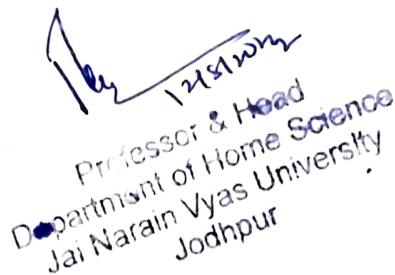 Professor & Head
Department of Home Science
Jai Narain Vyas University
Jodhpur